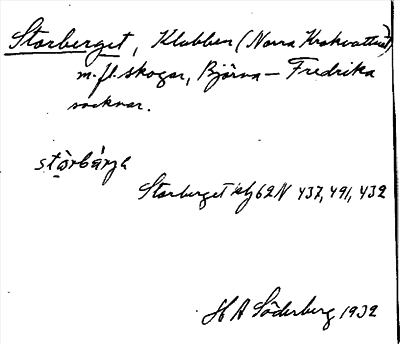 Storberget, Klubben (Norra Krokvattnet)
m. fl. skogar, Björna – Fredrika
socknar.
stòrbárja
Storberget 62N 437, 491, 432
H A Söderberg 1932